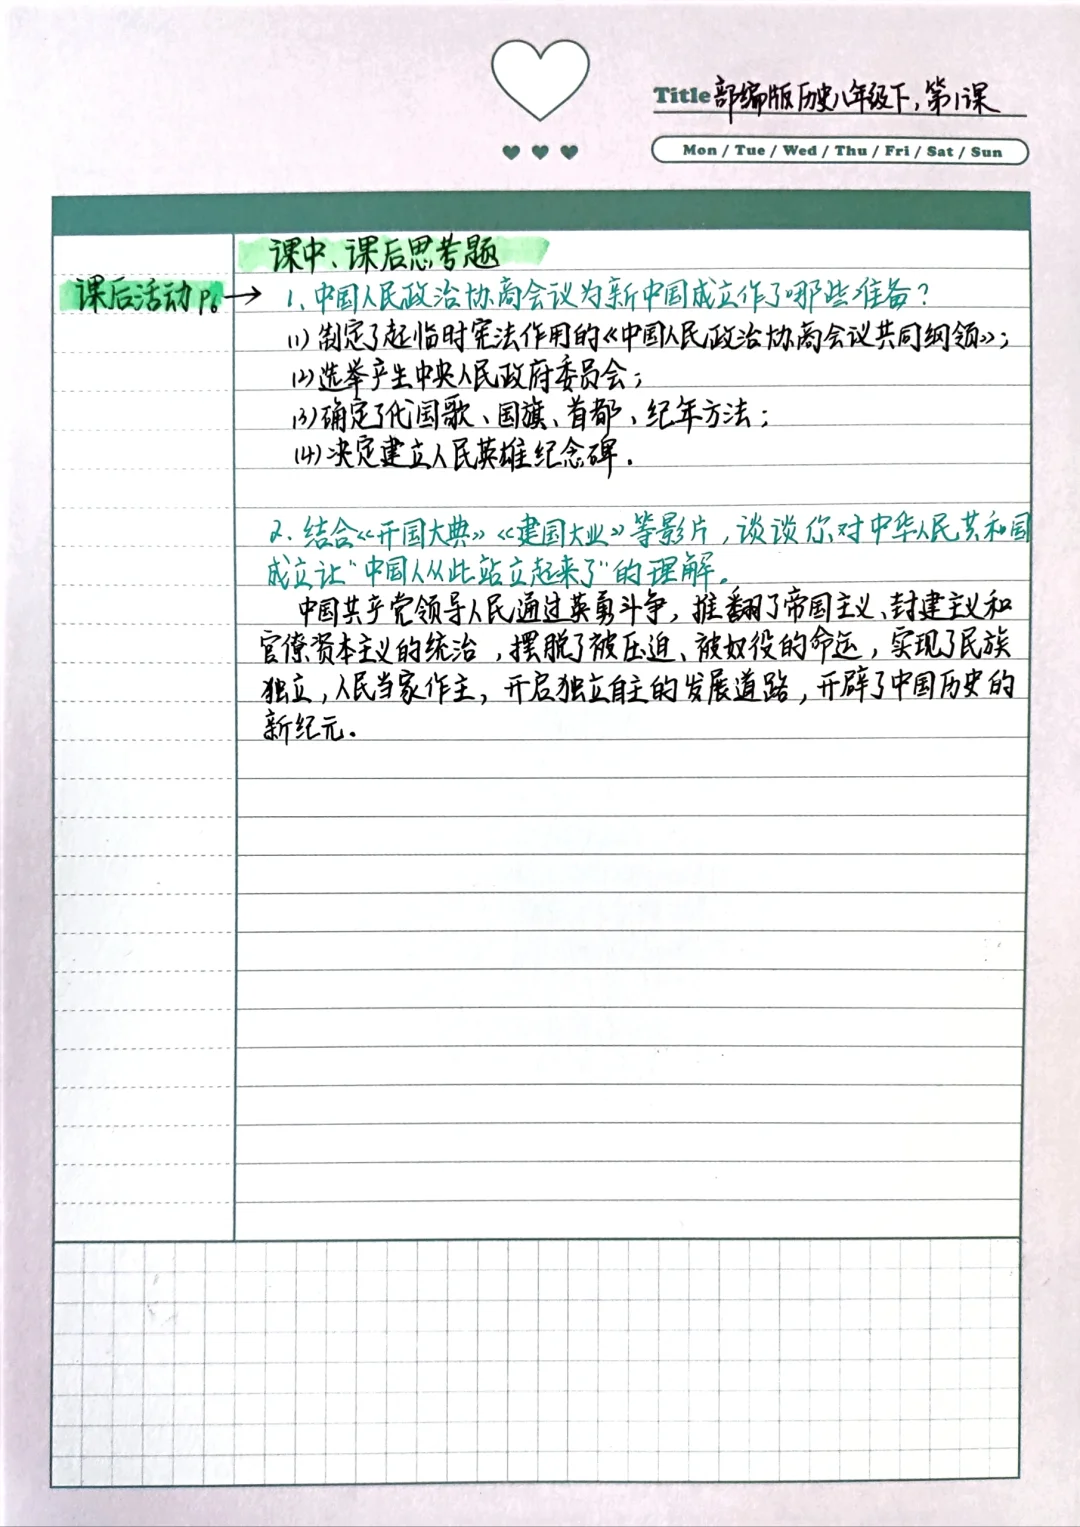 Title 部编版历史八年级下，第1课
Mon / Tue / Wed / Thu / Fri / Sat / Sun
课中、课后思考题
课后活动 P6 → 1、中国人民政治协商会议为新中国成立作了哪些准备？
(1) 制定了起临时宪法作用的《中国人民政治协商会议共同纲领》；
(2) 选举产生中央人民政府委员会；
(3) 确定了代国歌、国旗、首都、纪年方法；
(4) 决定建立人民英雄纪念碑．
2．结合《开国大典》《建国大业》等影片，谈谈你对中华人民共和国
成立让“中国人从此站立起来了”的理解。
中国共产党领导人民通过英勇斗争，推翻了帝国主义、封建主义和
官僚资本主义的统治，摆脱了被压迫、被奴役的命运，实现了民族
独立，人民当家作主，开启独立自主的发展道路，开辟了中国历史的
新纪元。